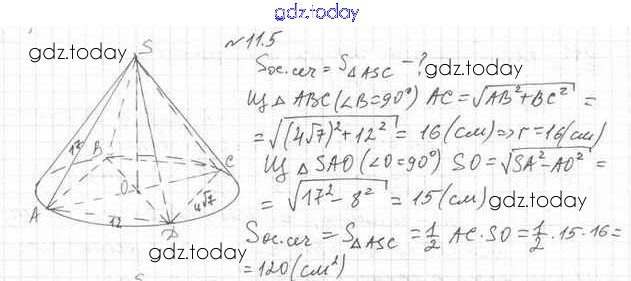 gdz.today
№11.5
gdz.today
Sос.сеч = S△ASC - ? gdz.today
Из △ ABC (∠B=90°) AC = √AB²+BC² =
= √(4√7)²+12² = 16 (см) => r = 16 (см)
Из △ SAO (∠O=90°) SO = √SA²-AO² =
= √17²-8² = 15 (см) gdz.today
Sос.сеч = S△ASC = 1/2 AC·SO = 1/2·15·16 =
= 120 (см²)
S
17
B
C
O
A
12
D
4√7
gdz.today
S